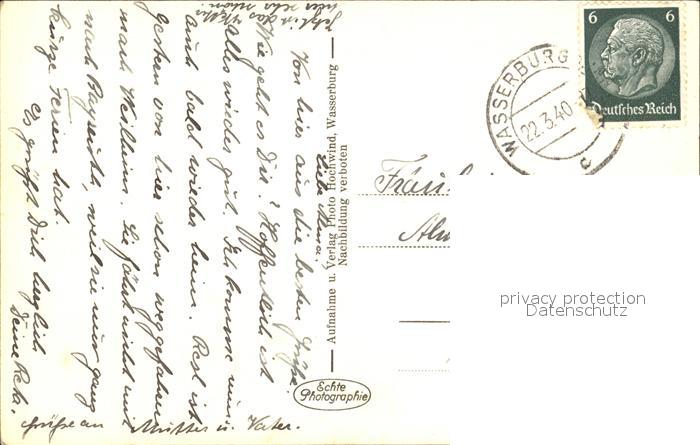 Liebe Alma!
Von hier aus die besten Grüße.
Wie geht es Dir? Hoffentlich ist
alles wieder gut. Ich komme nun
auch bald wieder heim. Resl ist
gestern von hier schon weggefahren
nach Weilheim. Sie fährt nicht mit
nach Bayreuth, weil sie nur ganz
kurze Ferien hat.
Es grüßt Dich herzlich
Deine Reta.
Grüße an Mutter u. Vater.
Jetzt ist das Wetter
hier sehr schön!
Aufnahme u. Verlag Photo Hochwind, Wasserburg
Nachbildung verboten
Echte
Photographie
WASSERBURG
22.3.40
c
6 6
Deutsches Reich
privacy protection
Datenschutz